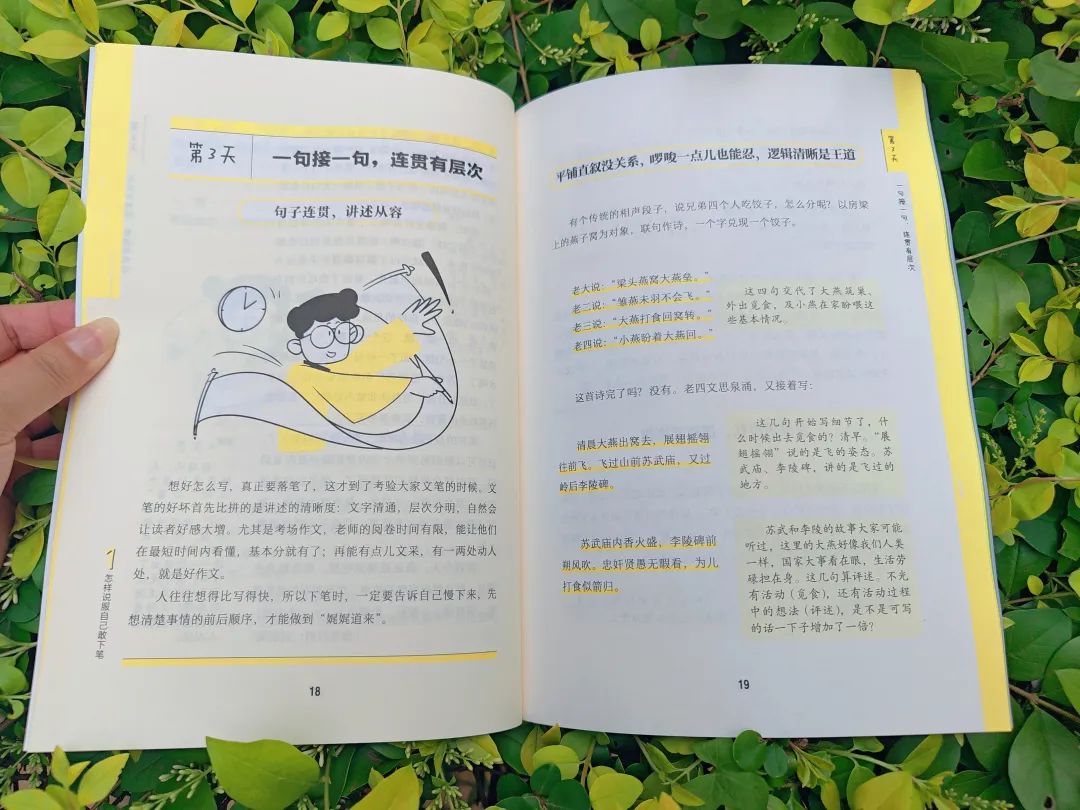 第3天
一句接一句，连贯有层次
句子连贯，讲述从容
想好怎么写，真正要落笔了，这才到了考验大家文笔的时候。文
笔的好坏首先比拼的是讲述的清晰度：文字清通，层次分明，自然会
让读者好感大增。尤其是考场作文，老师的阅卷时间有限，能让他们
在最短时间内看懂，基本分就有了；再能有点儿文采，有一两处动人
处，就是好作文。
人往往想得比写得快，所以下笔时，一定要告诉自己慢下来，先
想清楚事情的前后顺序，才能做到“娓娓道来”。
1
怎样说服自己敢下笔
18
平铺直叙没关系，啰唆一点儿也能忍，逻辑清晰是王道
有个传统的相声段子，说兄弟四个人吃饺子，怎么分呢？以房梁
上的燕子窝为对象，联句作诗，一个字兑现一个饺子。
老大说：“梁头燕窝大燕垒。”
老二说：“雏燕未羽不会飞。”
老三说：“大燕打食回窝转。”
老四说：“小燕盼着大燕回。”
这四句交代了大燕筑巢、
外出觅食，及小燕在家盼喂这
些基本情况。
这首诗完了吗？没有。老四文思泉涌，又接着写：
清晨大燕出窝去，展翅摇翎
往前飞。飞过山前苏武庙，又过
岭后李陵碑。
这几句开始写细节了，什
么时候出去觅食的？清早。“展
翅摇翎”说的是飞的姿态。苏
武庙、李陵碑，讲的是飞过的
地方。
苏武庙内香火盛，李陵碑前
朔风吹。忠奸贤愚无暇看，为儿
打食似箭归。
苏武和李陵的故事大家可能
听过，这里的大燕好像我们人类
一样，国家大事看在眼，生活劳
碌担在身。这几句算评述。不光
有活动（觅食），还有活动过程
中的想法（评述），是不是可写
的话一下子增加了一倍？
第3天
一句接一句，连贯有层次
19